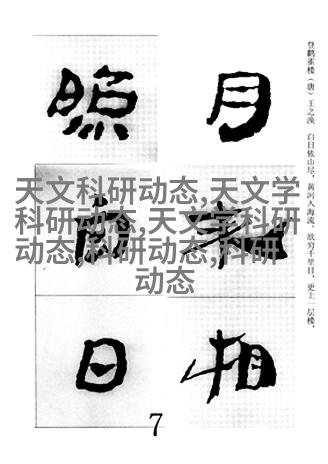 登鹳雀楼（唐）王之涣 白日依山尽，黄河入海流，欲穷千里目，更上一层楼。
月来相
照白日
天文科研动态,天文学
科研动态,天文学科研
动态,科研动态,科研
动态
7